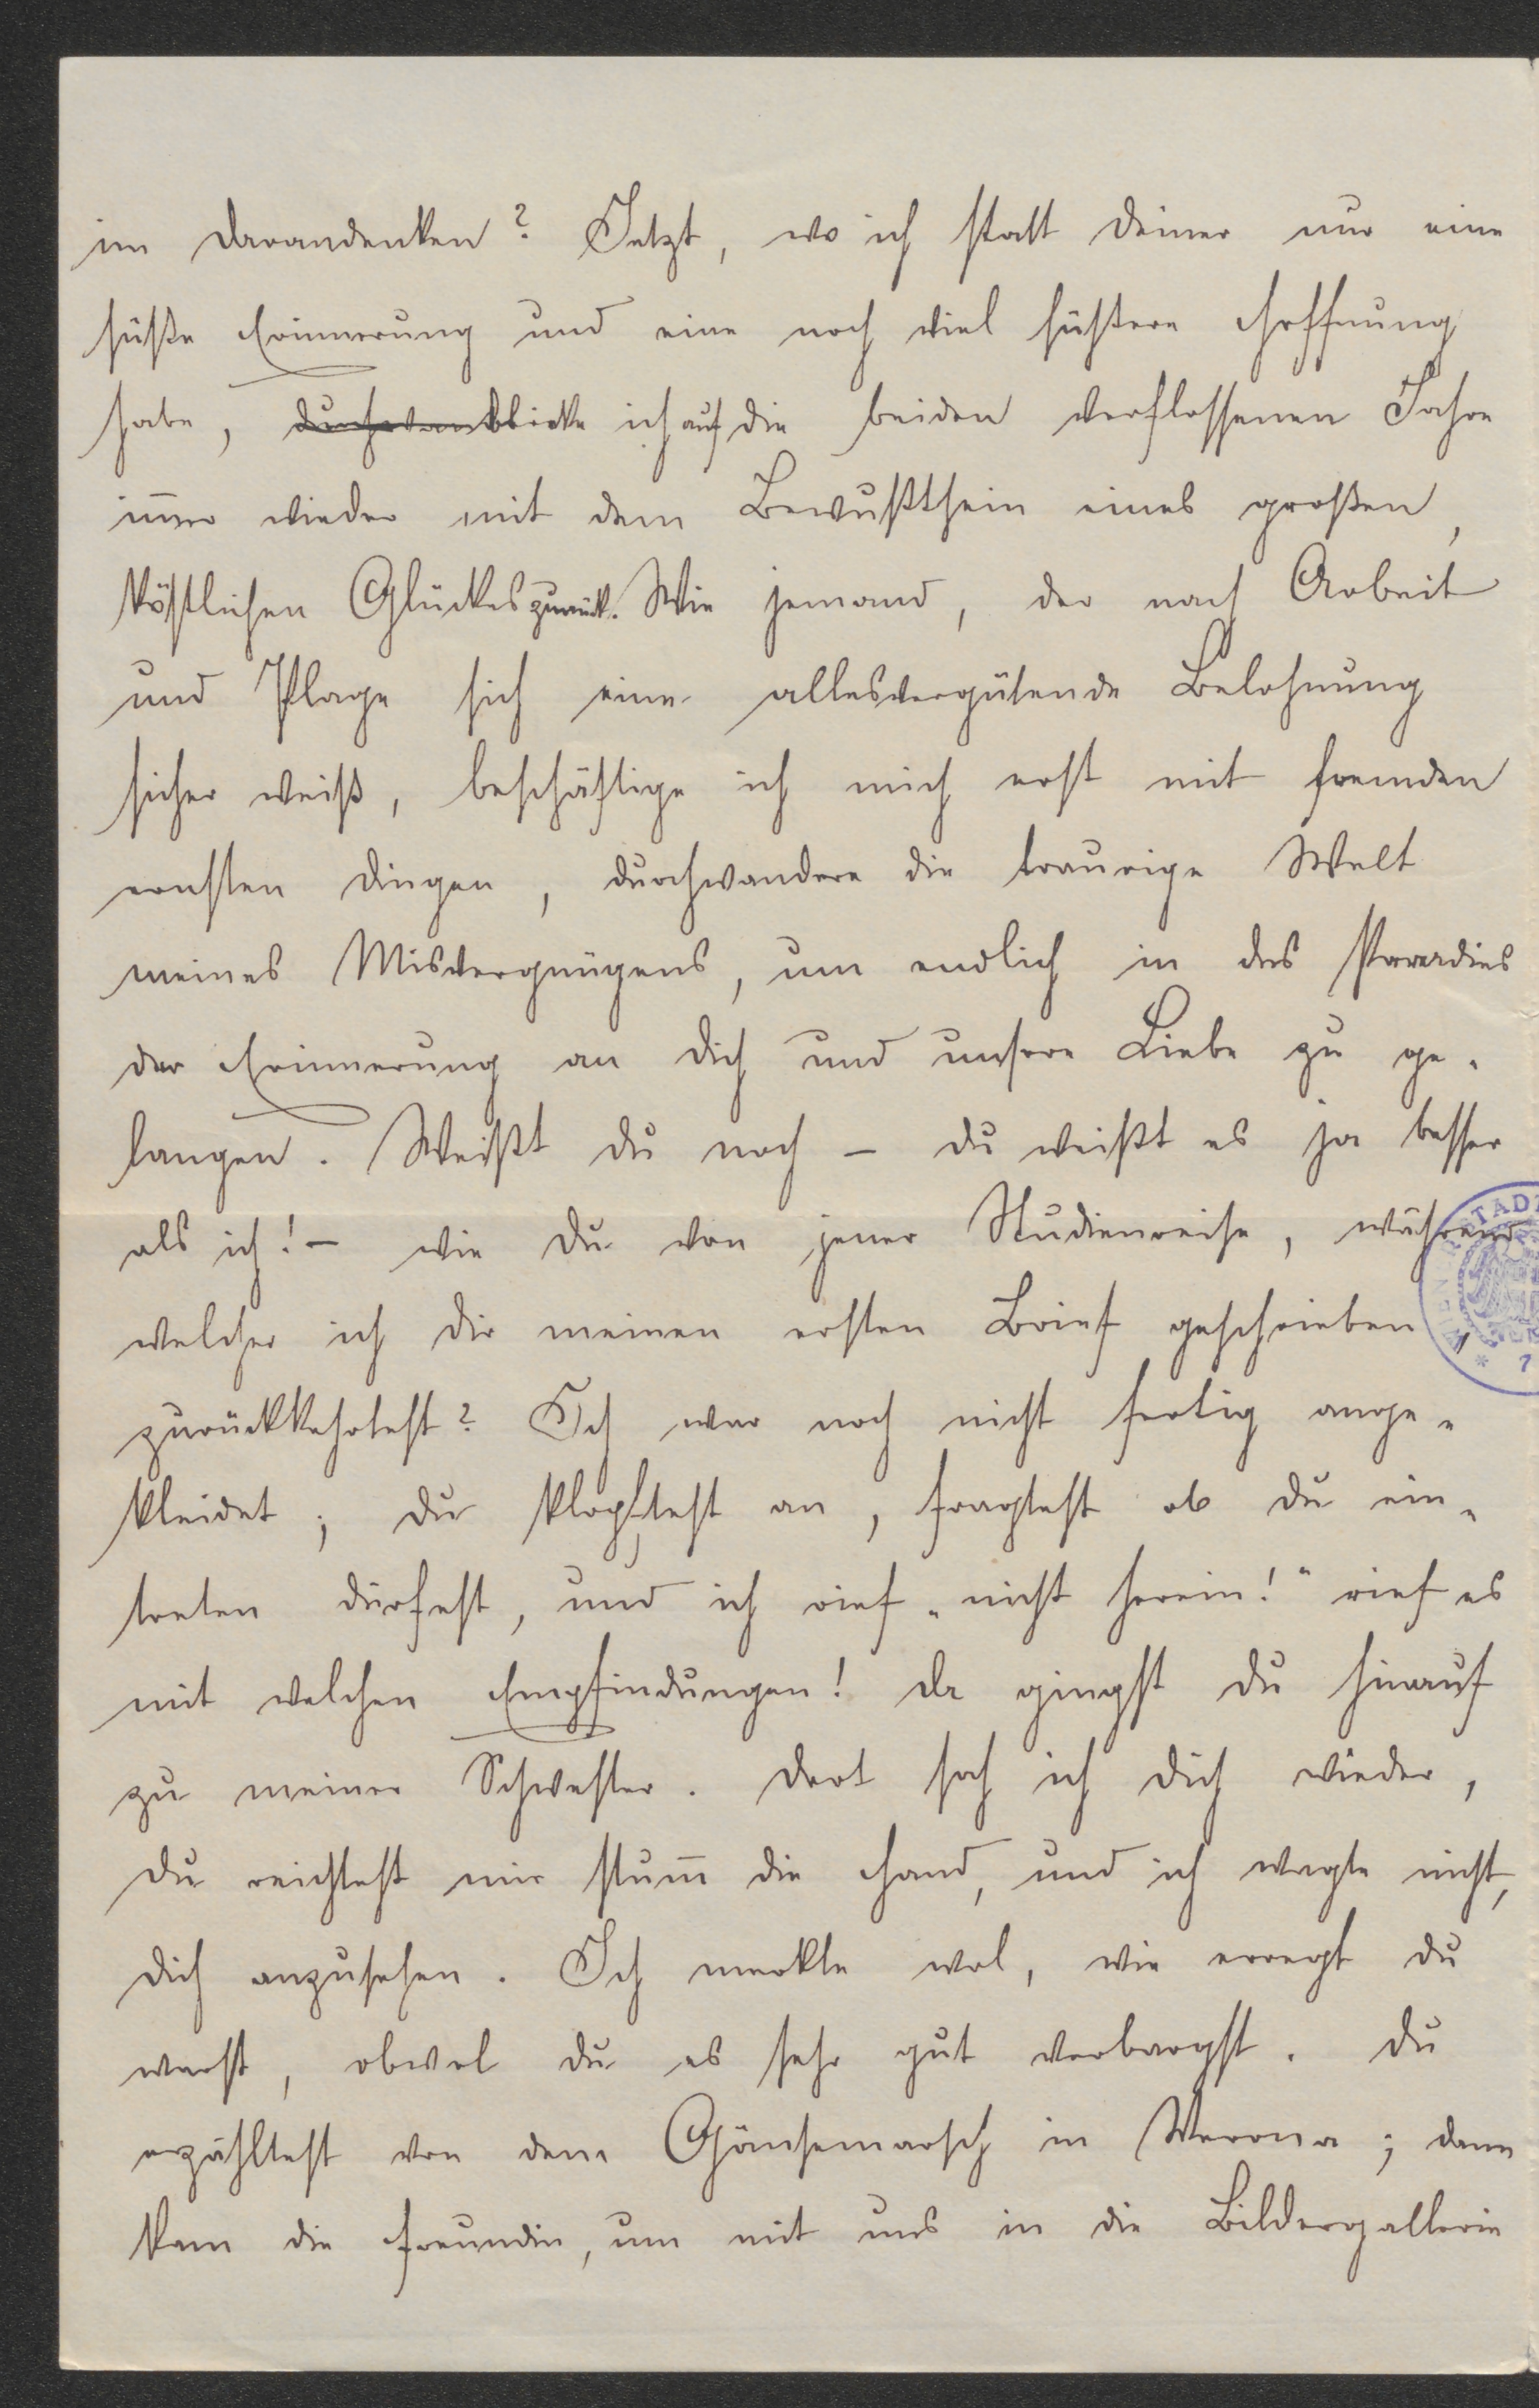 im Darandenken? Jetzt, wo ich statt Deiner nur eine
süße Erinnerung und eine noch viel süßere Hoffnung
habe, durchwan blicke ich auf die beiden verflossenen Jahre
im̅er wieder mit dem Bewußtsein eines großen,
köstlichen Glückes zurück. Wie jemand, der nach Arbeit
und Plage sich eine allesvergütende Belohnung
sicher weiß, beschäftige ich mich erst mit fremden
ernsten Dingen, durchwandere die traurige Welt
meines Misvergnügens, um endlich in das Paradies
der Erinnerung an Dich und unsere Liebe zu ge-
langen. Weißt du noch – du weißt es ja besser
als ich! – wie du von jener Studienreise, während
welcher ich dir meinen ersten Brief geschrieben,
zurückkehrtest? Ich war noch nicht fertig ange-
kleidet; du klopftest an, fragtest ob du ein-
treten dürfest, und ich rief „nicht herein!" rief es
mit welchen Empfindungen! Da gingst du hinauf
zu meiner Schwester. Dort sah ich dich wieder,
du reichtest mir stum̅ die Hand, und ich wagte nicht,
dich anzusehen. Ich merkte wol, wie erregt du
warst, obwol du es sehr gut verbargst. Du
erzähltest von dem Gänsemarsch in Verona; dann
kam die Freundin, um mit uns in die Bildergallerie